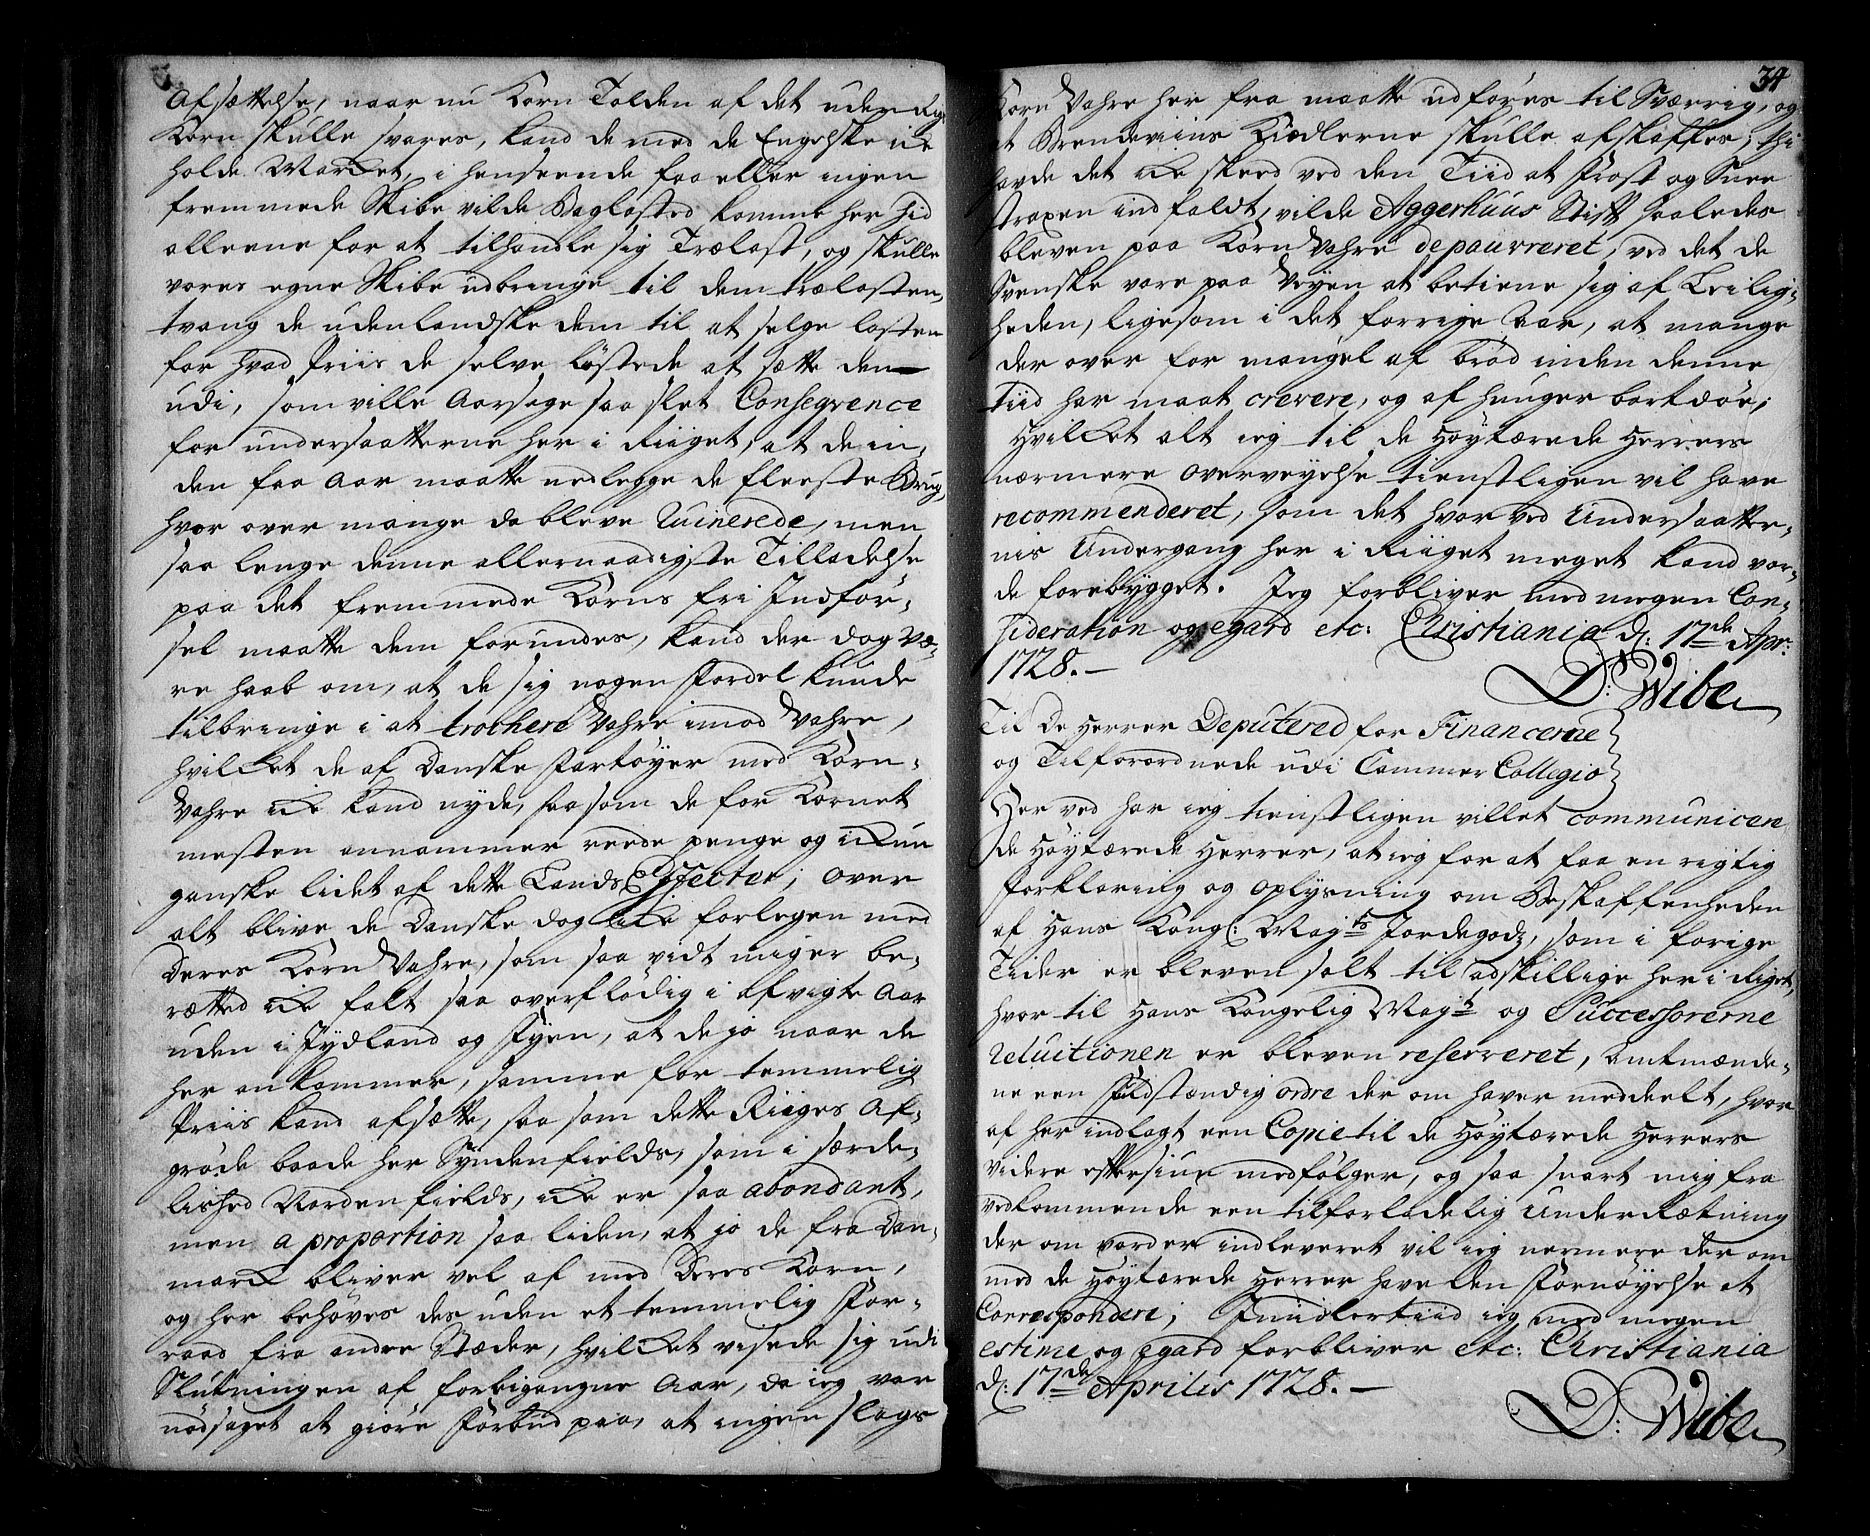 Afsættelse, naar nu Korn Tolden af det udenrigs
Korn skulle svares, kand de med de Engelske icke
holde Marcket, i henseende faa eller ingen
fremmede Skibe vilde Baglasted komme her hid
alleene for at tilhandle sig Trælast, og skulle
vores egne Skibe udbringe til dem trælasten,
tvang de udenlandske dem til at selge lasten
for hvad Priis de selve løstede at sætte den
udi, som ville aarsage saa slet Conseqvence
for undersaatterne her i Riiget, at de in-
den faa Aar maatte nedlegge de fleeste Brug,
hvor over mange da bleve Ruinerede, men
saa lenge denne allernaadigste Tilladelse
paa det fremmede Korns fri Indfør-
sel maatte dem forundes, kand der dog væ-
re haab om, at de sig nogen Fordel kunde
tilbringe i at trochere Vahre imod Vahre,
hvilcket de af Danske Fartøyer med Korn-
Vahre icke kand nyde, saa som de for Kornet
mesten annammer reede penge og ickun
ganske lidet af dette Lands Effecter; over
alt blive de Danske dog icke forlegen med
Deres Korn Vahre, som saa vidt mig er be-
rætted icke falt saa overflødig i afvigte Aar
uden i Jydland og Fyen, at de jo naar de
her ankommer, samme for temmelig
Priis kand afsætte, saa som dette Riiges Af-
grøde baade her Syndenfields, som i særde-
lished Nordenfields, icke er saa abondant,
men a proportion saa liden, at jo de fra Dan-
marck bliver vel af med Deres Korn,
og her behøves des uden et temmelig For-
raad fra andre Stæder, hvilcket visede sig udi
Slutningen af forbigangne Aar, da ieg var
nødsaget at giøre Forbud paa, at ingen slags
34
Korn Vahre her fra maatte udføres til Sverrig, og
at Brendeviins Kiedlerne skulle afskaffes; thi
havde det icke skeed ved den Tiid at Frost og Snee
straxen indfaldt, vilde Aggerhuus Stift saaledes
bleven paa Korn Vahre depauvreret, ved det de
Svenske vare paa Veyen at betiene sig af Leilig-
heden, ligesom i det forrige Aar, at mange
der over for mangel af brød inden denne
Tiid har maat crevere, og af hunger bortdøe;
Hvilcket alt ieg til de Høytærede Herrers
nærmere overveyelse tienstligen vil have
recommenderet, som det hvor ved Undersaatter-
nis Undergang her i Riiget meget kand vor-
de forebygget. Jeg forbliver med megen Con-
sideration og egard etc: Christiania d: 17de Apr:
1728.-
D: Wibe
Til De Herrer Deputered for Financerne
og Tilforordnede udi Cammer Collegio
Her ved har ieg tienstligen villet communicere
de Høytærede Herrer, at ieg for at faa en rigtig
forklaring og oplysning om Beskaffenheden
af Hans Kongl: Mayts Jordegodz, som i forige
Tider er bleven solt til adskillige her i Riget,
hvor til Hans Kongelig Mayts og Successorerne
Reluitionen er bleven reserveret, Amtmænde-
ne een Fuldstændig ordre der om haver meddeelt, hvor
af her indlagt een Copie til de Høytærede Herrers
videre eftersiun medfølger, og saa snart mig fra
vedkommende een tilforladelig Underrætning
der om vorder indleveret vil ieg nermere der om
med de Høytærede Herrer have den Fornøyelse at
Correspondere; Imidlertiid ieg med megen
estime og egard forbliver etc: Christiania
d: 17de Aprilis 1728.-
D: Wibe